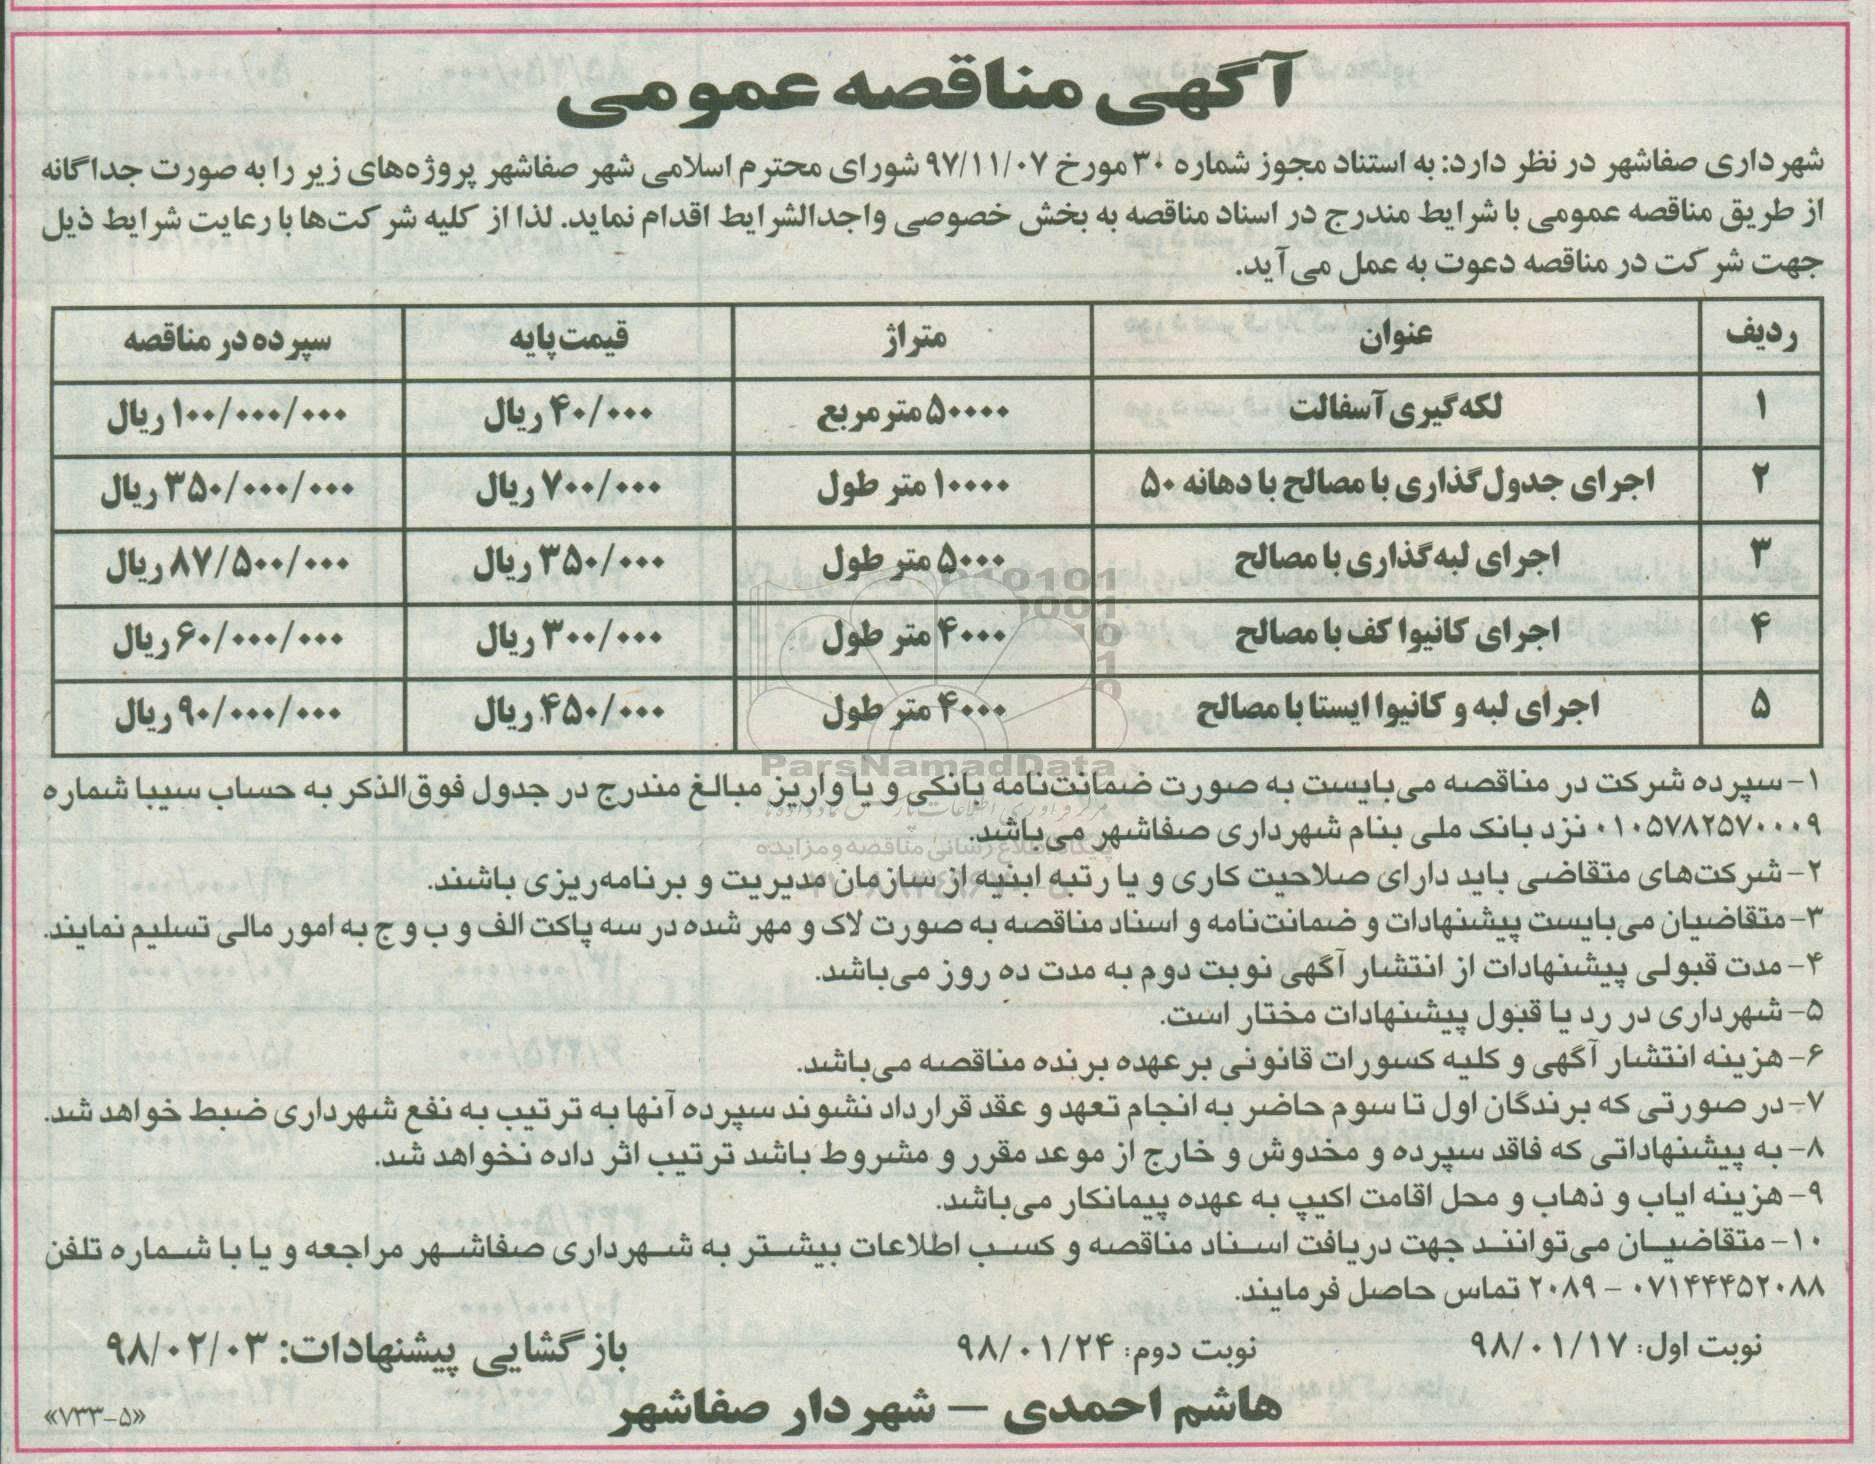 آگهی مناقصه عمومی
شهرداری صفاشهر در نظر دارد: به استناد مجوز شماره ۳۰ مورخ ۹۷/۱۱/۰۷ شورای محترم اسلامی شهر صفاشهر پروژه‌های زیر را به صورت جداگانه
از طریق مناقصه عمومی با شرایط مندرج در اسناد مناقصه به بخش خصوصی واجدالشرایط اقدام نماید. لذا از کلیه شرکت‌ها با رعایت شرایط ذیل
جهت شرکت در مناقصه دعوت به عمل می‌آید.
ردیف عنوان متراژ قیمت پایه سپرده در مناقصه
۱ لکه‌گیری آسفالت ۵۰۰۰۰ مترمربع ۴۰/۰۰۰ ریال ۱۰۰/۰۰۰/۰۰۰ ریال
۲ اجرای جدول‌گذاری با مصالح با دهانه ۵۰ ۱۰۰۰۰ متر طول ۷۰۰/۰۰۰ ریال ۳۵۰/۰۰۰/۰۰۰ ریال
۳ اجرای لبه‌گذاری با مصالح ۵۰۰۰ متر طول ۳۵۰/۰۰۰ ریال ۸۷/۵۰۰/۰۰۰ ریال
۴ اجرای کانیوا کف با مصالح ۴۰۰۰ متر طول ۳۰۰/۰۰۰ ریال ۶۰/۰۰۰/۰۰۰ ریال
۵ اجرای لبه و کانیوا ایستا با مصالح ۴۰۰۰ متر طول ۴۵۰/۰۰۰ ریال ۹۰/۰۰۰/۰۰۰ ریال
ParsNamadData
۱- سپرده شرکت در مناقصه می‌بایست به صورت ضمانت‌نامه بانکی و یا واریز مبالغ مندرج در جدول فوق‌الذکر به حساب سیبا شماره
۰۱۰۵۷۸۲۵۷۰۰۰۹ نزد بانک ملی بنام شهرداری صفاشهر می‌باشد.
۲- شرکت‌های متقاضی باید دارای صلاحیت کاری و یا رتبه ابنیه از سازمان مدیریت و برنامه‌ریزی باشند.
۳- متقاضیان می‌بایست پیشنهادات و ضمانت‌نامه و اسناد مناقصه به صورت لاک و مهر شده در سه پاکت الف و ب و ج به امور مالی تسلیم نمایند.
۴- مدت قبولی پیشنهادات از انتشار آگهی نوبت دوم به مدت ده روز می‌باشد.
۵- شهرداری در رد یا قبول پیشنهادات مختار است.
۶- هزینه انتشار آگهی و کلیه کسورات قانونی بر عهده برنده مناقصه می‌باشد.
۷- در صورتی که برندگان اول تا سوم حاضر به انجام تعهد و عقد قرارداد نشوند سپرده آنها به ترتیب به نفع شهرداری ضبط خواهد شد.
۸- به پیشنهاداتی که فاقد سپرده و مخدوش و خارج از موعد مقرر و مشروط باشد ترتیب اثر داده نخواهد شد.
۹- هزینه ایاب و ذهاب و محل اقامت اکیپ به عهده پیمانکار می‌باشد.
۱۰- متقاضیان می‌توانند جهت دریافت اسناد مناقصه و کسب اطلاعات بیشتر به شهرداری صفاشهر مراجعه و یا با شماره تلفن
۰۷۱۴۴۴۵۲۰۸۸ - ۲۰۸۹ تماس حاصل فرمایند.
نوبت اول: ۹۸/۰۱/۱۷ نوبت دوم: ۹۸/۰۱/۲۴ بازگشایی پیشنهادات: ۹۸/۰۲/۰۳
هاشم احمدی - شهردار صفاشهر
«۷۳۳-۵»